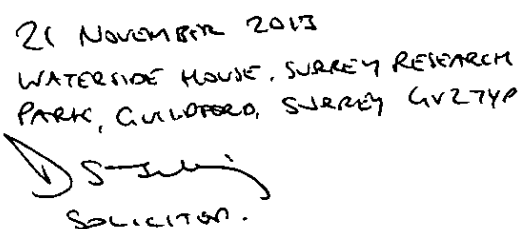 21 NOVEMBER 2013
WATERSIDE HOUSE, SURREY RESEARCH
PARK, GUILDFORD, SURREY GU2 7YP
SOLICITOR.